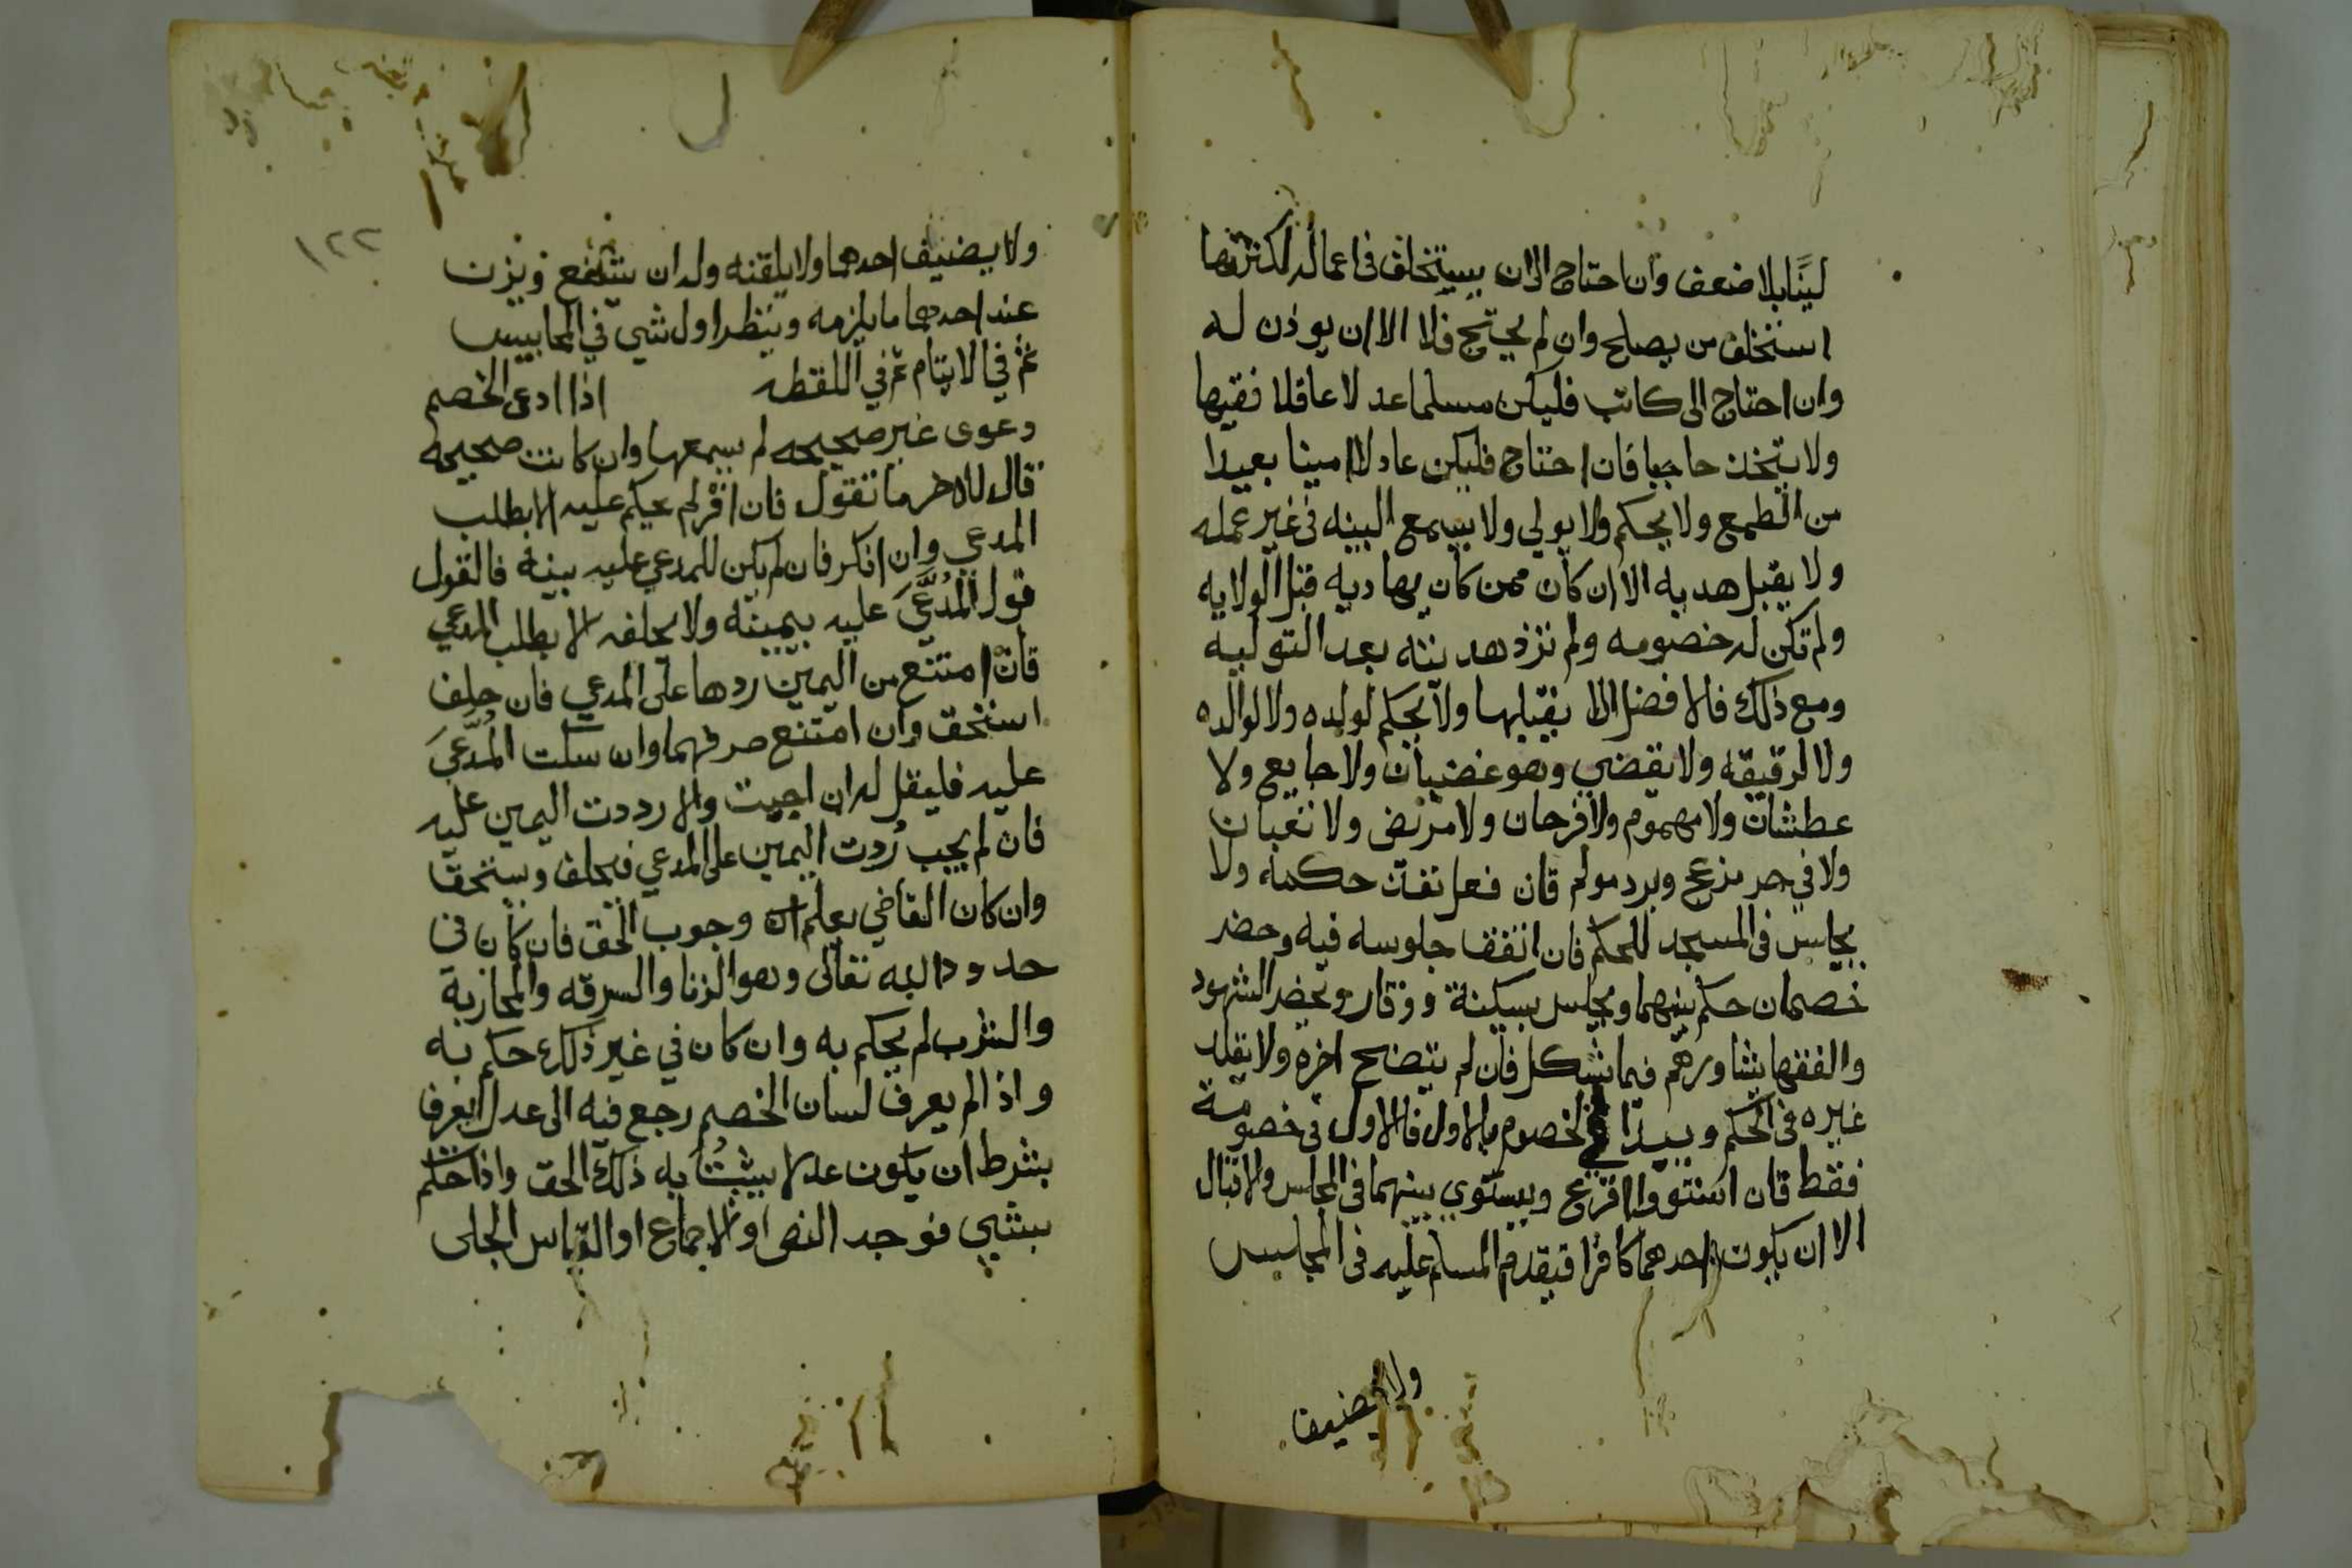 لينًا بلا ضعف وان احتاج الى ان يستخلف في اعماله لكثرتها
استخلف من يصلح وان لم يحتج فلا الا ان يوذن له
وان احتاج الى كاتب فليكن مسلما عدلا عاقلا فقيها
ولا يتخذ حاجبا فان احتاج فليكن عادلا امينا بعيدا
من الطمع ولا يحكم ولا يولي ولا يسمع البينه في غير عمله
ولا يقبل هديه الا ان كان ممن كان يهاديه قبل الولايه
ولم تكن له خصومه ولم تزد هديته بعد التوليه
ومع ذلك فالافضل الا يقبلها ولا يحكم لولده ولا لوالده
ولا لرقيقه ولا يقضي وهو غضبان ولا جايع ولا
عطشان ولا مهموم ولا فرحان ولا مريض ولا نعبان
ولا في حر مزعج وبرد مولم فان فعل نفذ حكمه ولا
يجلس في المسجد للحكم فان اتفق جلوسه فيه وحضر
خصمان حكم بينهما ويجلس بسكينة ووقار ويحضر الشهود
والفقها يشاورهم فيما يشكل فان لم يتضح اخره ولا يقلد
غيره في الحكم ويبدا في الخصوم بالاول فالاول في خصومة
فقط فان استووا اقرع ويستوي بينهما في المجلس والاقبال
الا ان يكون احدهما كافرا فيقدم المسلم عليه في المجلس
ولا يضيف
١٢٢
ولا يضيف احدهما ولا يلقنه وله ان يشفع ويزن
عند احدهما ما يلزمه وينظر اول شي في المحابيس
ثم في الايتام ثم في اللقطه اذا ادعى الخصم
دعوى غير صحيحه لم يسمعها وان كانت صحيحه
قال للاخر ما تقول فان اقر لم يحكم عليه الا بطلب
المدعي وان انكر فان لم يكن للمدعي عليه بينه فالقول
قول المُدَّعَى عليه بيمينه ولا يحلفه الا بطلب المدعي
فان امتنع من اليمين ردها على المدعي فان حلف
استحق وان امتنع صرفهما وان سكت المُدَّعَى
عليه فليقل له ان اجبت والا رددت اليمين عليه
فان لم يجب رُدت اليمين على المدعي فيحلف ويستحق
وان كان القاضي يعلم وجوب الحق فان كان في
حدود الله تعالى وهو الزنا والسرقه والمحاربة
والشرب لم يحكم به وان كان في غير ذلك حكم به
واذا لم يعرف لسان الخصم رجع فيه الى عدل يعرف
بشرط ان يكون عدلا يثبتُ به ذلك الحق واذا حكم
بشي فوجد النص او الاجماع او القياس الجلى